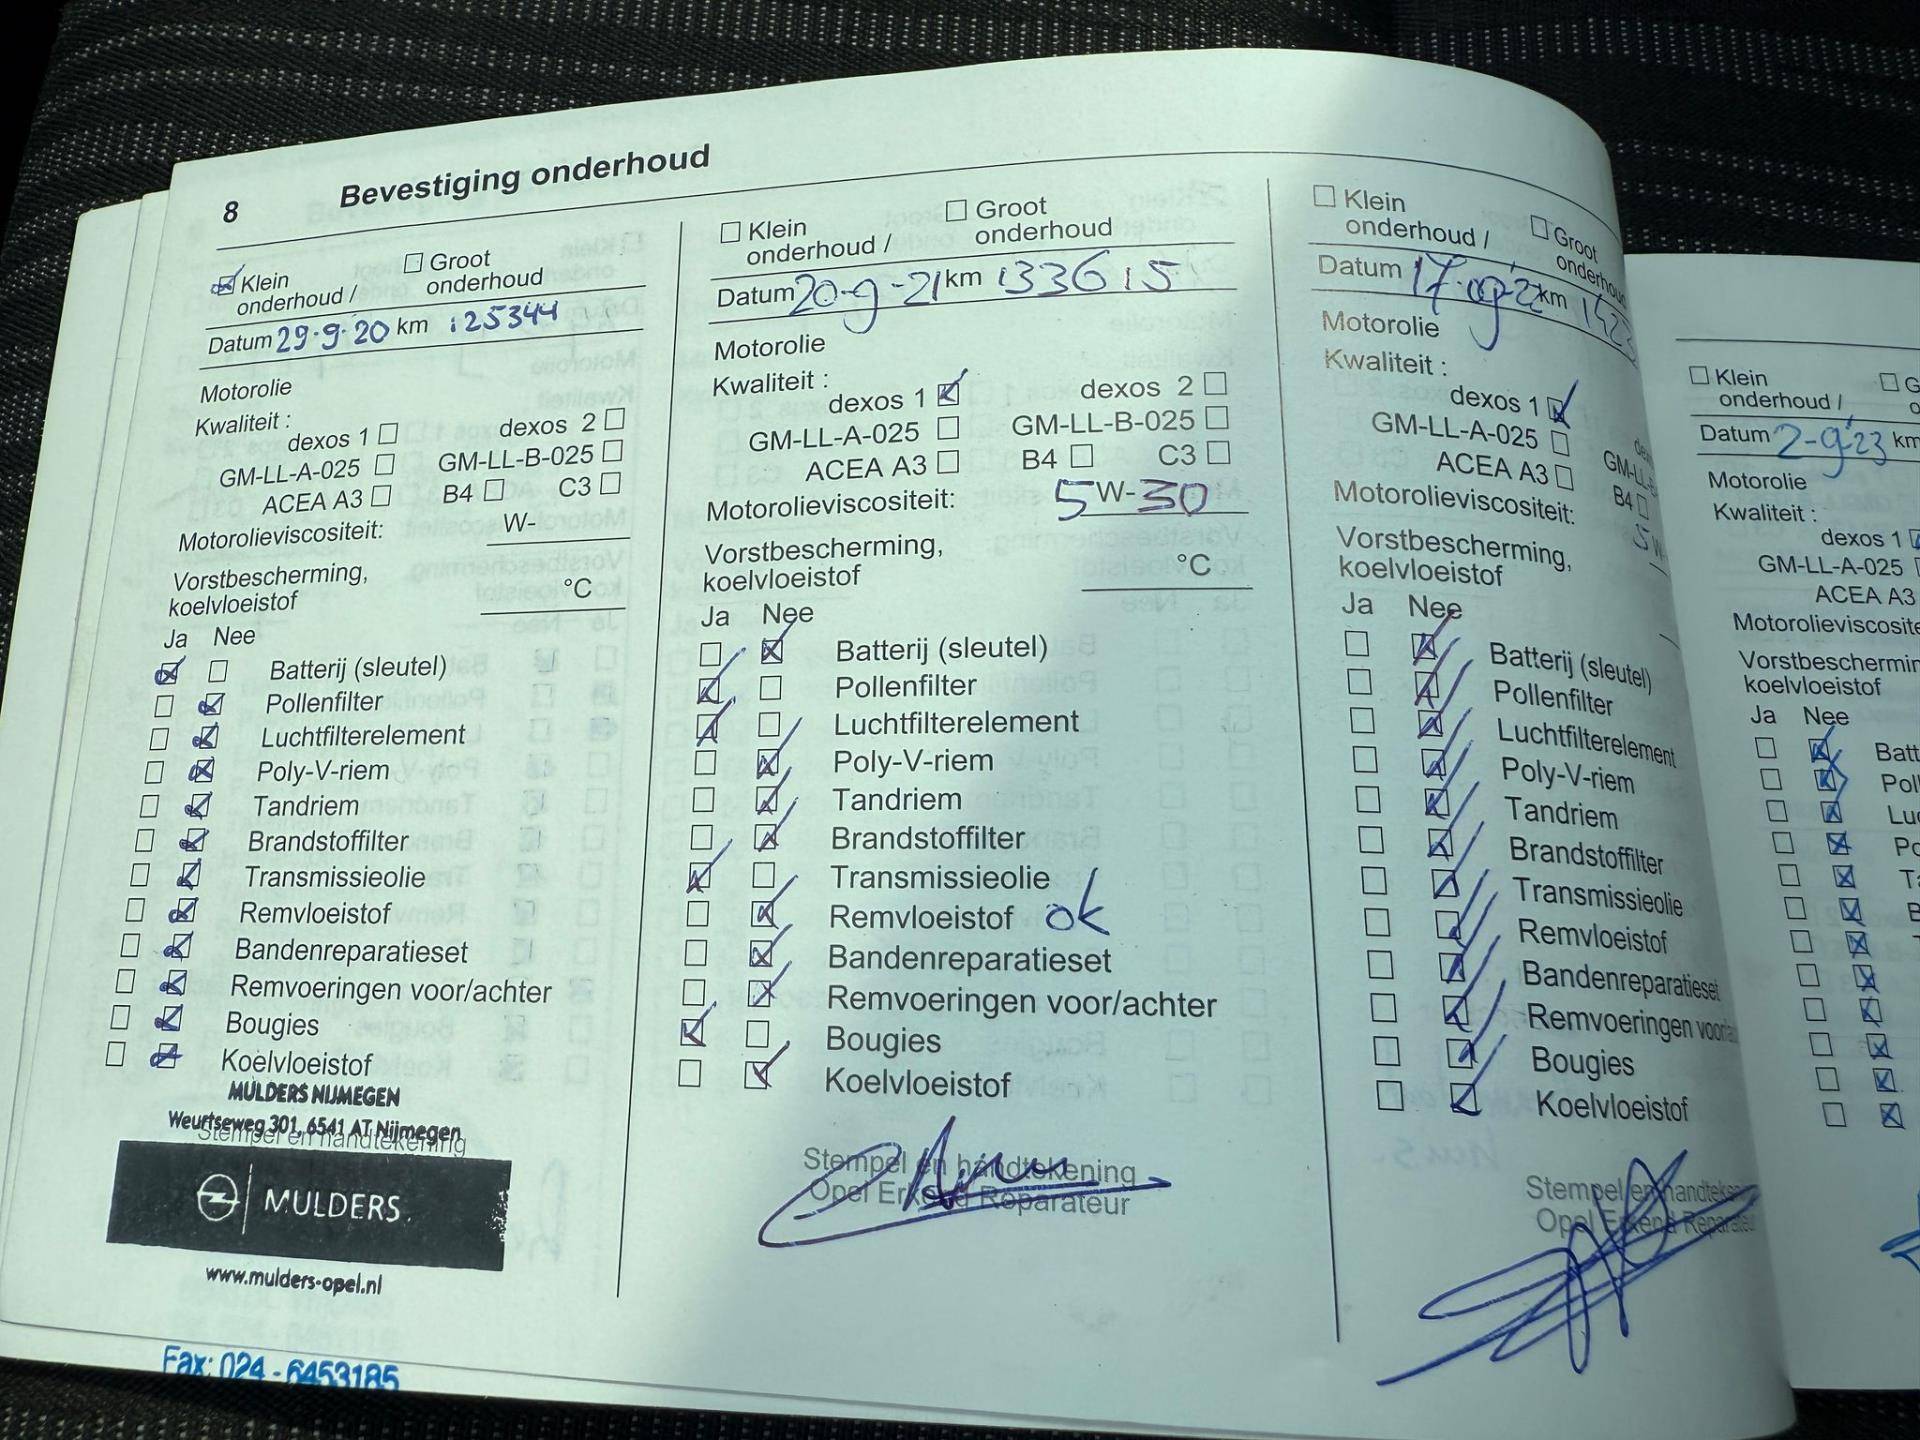 8 Bevestiging onderhoud
Klein onderhoud / Groot onderhoud
Datum 29-9-20 km 125344
Motorolie
Kwaliteit :
dexos 1 dexos 2
GM-LL-A-025 GM-LL-B-025
ACEA A3 B4 C3
Motorolieviscositeit: W-
Vorstbescherming,
koelvloeistof °C
Ja Nee
Batterij (sleutel)
Pollenfilter
Luchtfilterelement
Poly-V-riem
Tandriem
Brandstoffilter
Transmissieolie
Remvloeistof
Bandenreparatieset
Remvoeringen voor/achter
Bougies
Koelvloeistof
MULDERS NIJMEGEN
Weurtseweg 301, 6541 AT Nijmegen
Stempel en handtekening
MULDERS.
www.mulders-opel.nl
Fax: 024 - 6453185
Klein onderhoud / Groot onderhoud
Datum 20-9-21 km 133615
Motorolie
Kwaliteit :
dexos 1 dexos 2
GM-LL-A-025 GM-LL-B-025
ACEA A3 B4 C3
Motorolieviscositeit: 5W-30
Vorstbescherming,
koelvloeistof °C
Ja Nee
Batterij (sleutel)
Pollenfilter
Luchtfilterelement
Poly-V-riem
Tandriem
Brandstoffilter
Transmissieolie
Remvloeistof ok
Bandenreparatieset
Remvoeringen voor/achter
Bougies
Koelvloeistof
Stempel en handtekening
Opel Erkend Reparateur
Klein onderhoud / Groot onderhoud
Datum km
Motorolie
Kwaliteit :
dexos 1
GM-LL-A-025
ACEA A3 B4
Motorolieviscositeit: 5W-
Vorstbescherming,
koelvloeistof
Ja Nee
Batterij (sleutel)
Pollenfilter
Luchtfilterelement
Poly-V-riem
Tandriem
Brandstoffilter
Transmissieolie
Remvloeistof
Bandenreparatieset
Remvoeringen
Bougies
Koelvloeistof
Stempel en
Opel Erkend Reparateur
Klein onderhoud /
Datum 2-9-23 km
Motorolie
Kwaliteit :
dexos 1
GM-LL-A-025
ACEA A3
koelvloeistof
Ja Nee